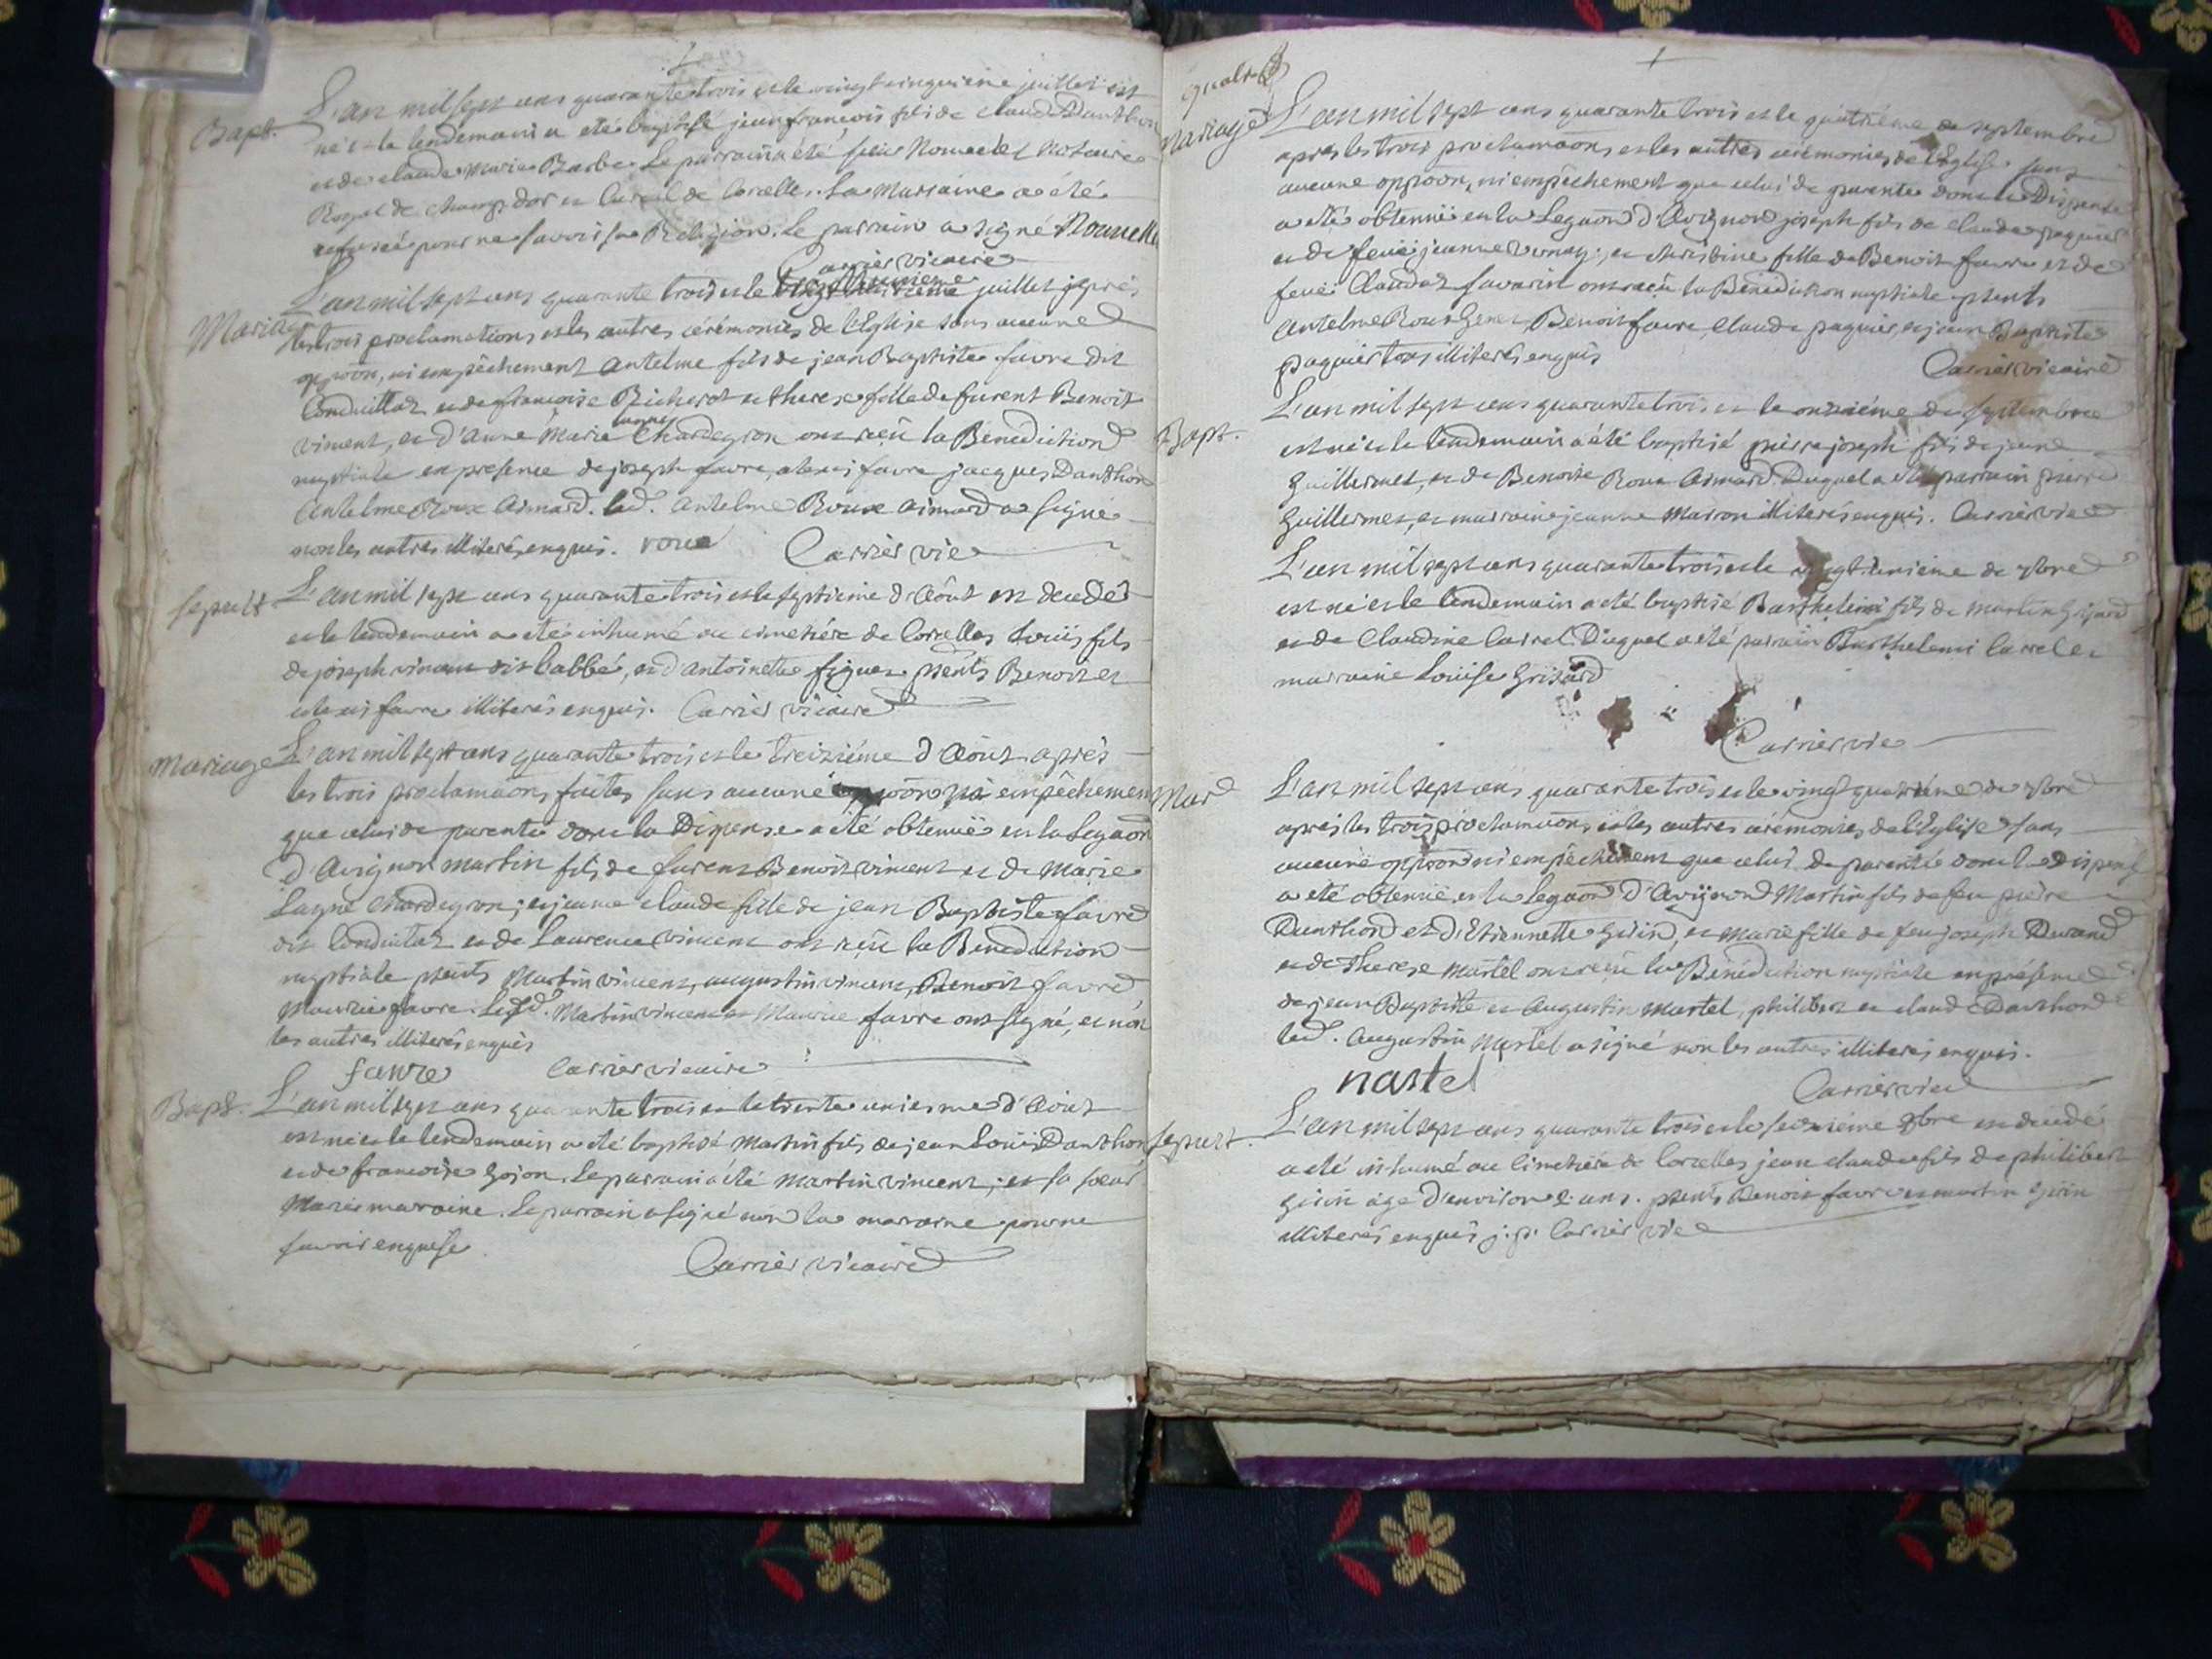 Bapt.
L'an mil sept cens quarante trois et le vingt cinquieme juillet est
né et le lendemain a eté baptisé jean françois fils de claude Danthon
et de claude Marie Barbe. Le parrain a été sieur Nouvelet Notaire
Royal de Champdor et Curial de Corcelles. La Marraine a été
refusée pour ne savoir sa Religion. Le parrain a signé Nouvelle
Carrier vicaire
Mariage
L'an mil sept cens quarante trois et le juillet après
les trois proclamations et les autres cérémonies de l'Eglise sans aucune
oppoon, ni empêchement antelme fils de jean Baptiste favre dit
Conduillat et de françoise Richerot et therese fille de furent Benoit
vincent, et d'anne Marie Chardeyron ont reçu la Benediction
nuptiale en presence de joseph favre, alexis favre jacques Danthon
antelme Roux aimard. led. antelme Roux aimard a signé
non les autres illiterés enquis. roux Carrier vic
sepult.
L'an mil sept cens quarante trois et le septieme d'Aôut est decedé
et le lendemain a eté inhumé au cimetiére de Corcelles Loüis fils
de joseph vincent dit labbé, et d'antoinette figuet pnts Benoit et
alexis favre illiterés enquis. Carrier vicaire
Mariage
L'an mil sept cens quarante trois et le treiziéme d'Aôut après
les trois proclamaons faites sans aucune oppoon ni empêchement
que celui de parenté dont la Dispense a été obtenuë en la Legaon
d'Avignon martin fils de furent Benoit vincent et de Marie
Chardeyron; et jeanne claude fille de jean Baptiste favre
dit Conduillat et de Laurence vincent ont reçu la Benediction
nuptiale pnts Martin vincent, augustin vincent, Benoit favre
Maurice favre. Lesd. Martin vincent et Maurice favre ont signé, et non
les autres illiterés enquis
favre Carrier vicaire
Bapt.
L'an mil sept cens quarante trois et le trente uniesme d'Aôut
est né et le lendemain a eté baptisé Martin fils de jean Loüis Danthon
et de françoise Gojon. Le parrain a été martin vincent, et sa soeur
Marie marraine. Le parrain a signé non la marraine pour ne
savoir enquise
Carrier vicaire
Mariage
L'an mil sept cens quarante trois et le quatriéme de septembre
apres les trois proclamaons, et les autres cérémonies de l'Eglise sans
aucune oppoon, ni empêchement que celui de parenté dont la Dispense
a eté obtenuë en la Legaon d'Avignon joseph fils de claude paquier
et de feuë jeanne, et christine fille de Benoit favre et de
feuë Claudat favarin ont reçu la Bénédiction nuptiale pnts
antelme Roux, Benoit favre, Claude paquier, et jean Baptiste
paquier tous illiterés enquis
Carrier vicaire
Bapt.
L'an mil sept cens quarante trois et le onziéme de septembre
est né et le lendemain a été baptisé pierre joseph fils de jean
Guillermet, et de Benoite Roux aimard Duquel a été parrain pierre
Guillermet, et marraine jeanne Marron illiterés enquis. Carrier vic
L'an mil sept cens quarante trois et le vingt unieme de 7bre
est né et le lendemain a eté baptisé Barthelemi fils de martin Grisard
et de Claudine Carrel. Duquel a été parrain Barthelemi Carrel et
marraine Loüise Grisard
Carrier vic
Mar
L'an mil sept cens quarante trois et le vingt quatriéme de 7bre
apres les trois proclamaons, et les autres cérémonies de l'Eglise sans
aucune oppoon ni empêchement que celui de parenté dont la dispense
a eté obtenuë en la Legaon d'Avignon Martin fils de feu pierre
Danthon et d'Etiennette Girin, et marie fille de feu joseph Durand
et de therese martel ont reçu la Bénédiction nuptiale en présence
de jean Baptiste et Augustin martel, philibert et claude Danthon
led. Augustin Martel a signé non les autres illiterés enquis.
nartel Carrier vic
sepult.
L'an mil sept cens quarante trois et le seiziéme 8bre est decedé
a eté inhumé au cimetiére de Corcelles jean claude fils de philibert
girin agé d'environ 2 ans. pnts Benoit favre et martin girin
illiterés enquis j.p. Carrier vic